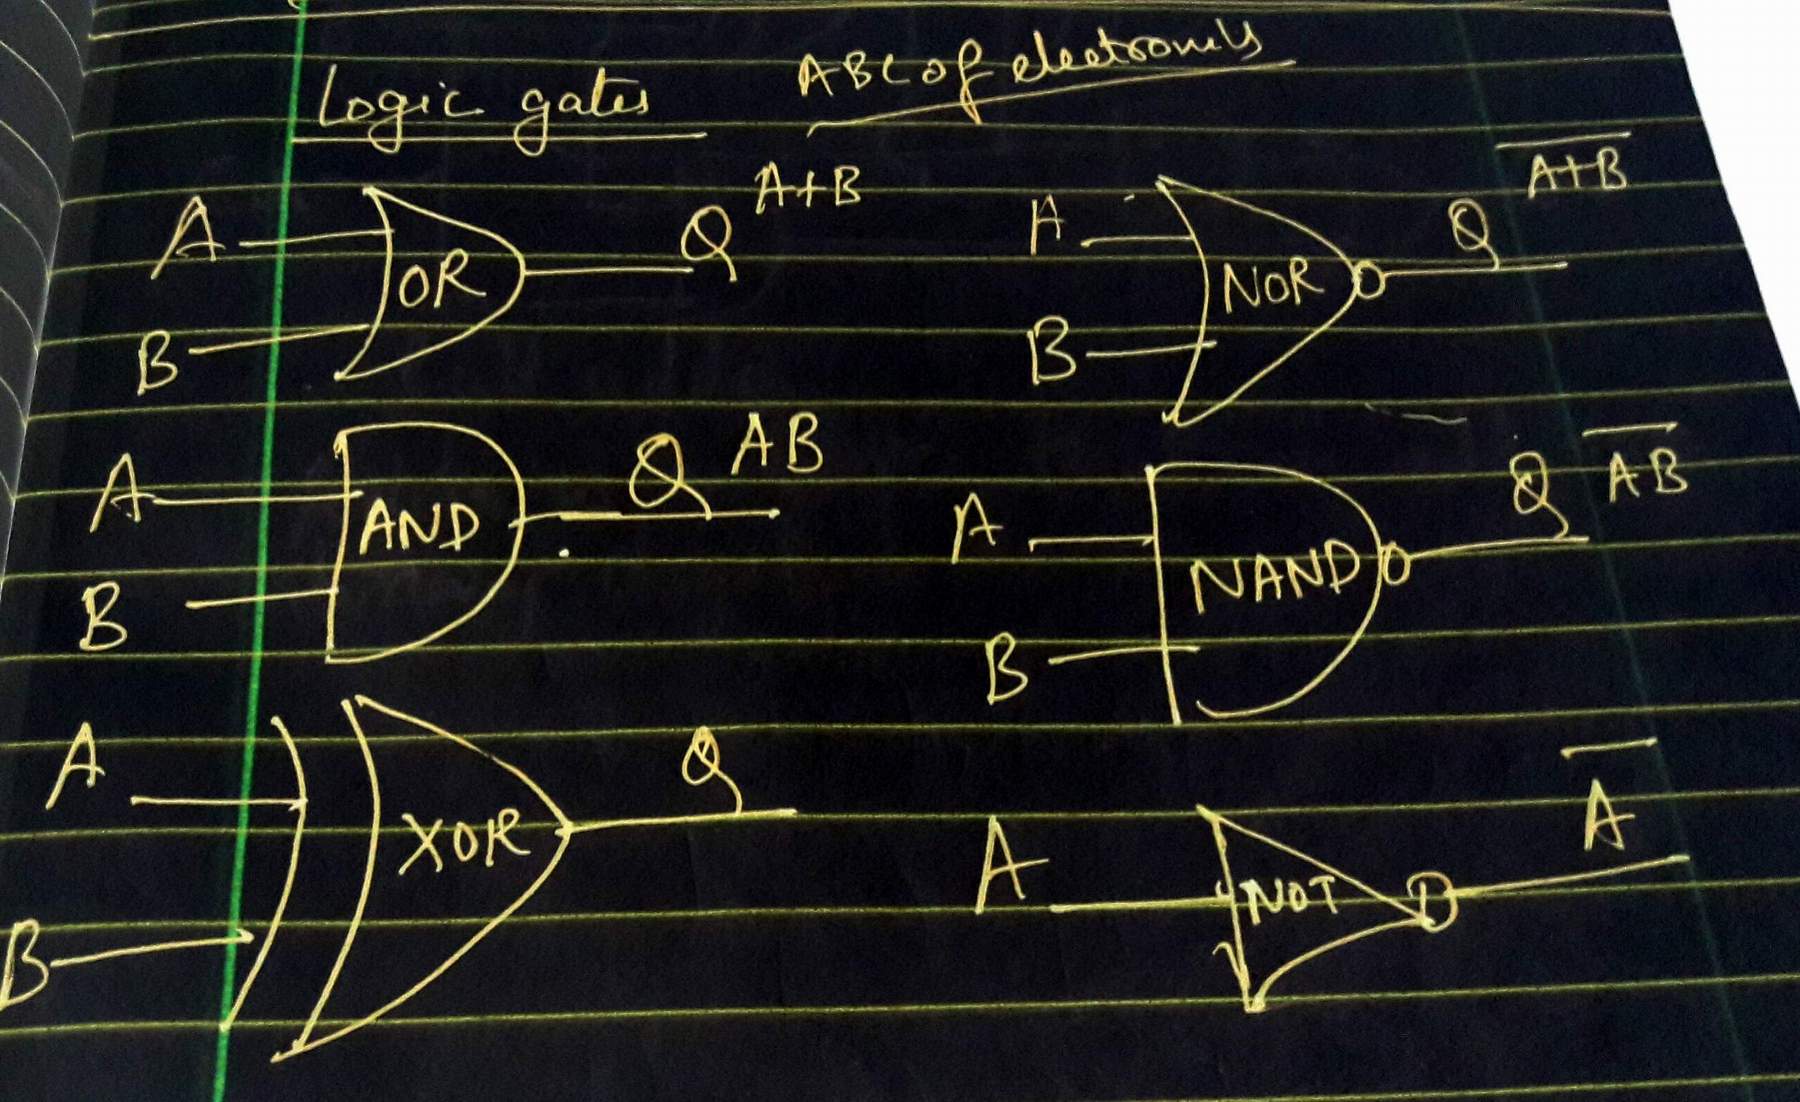 Logic gates ABC of electronics
A OR Q A+B
B
A NOR Q \overline{A+B}
B
A AND Q AB
B
A NAND Q \overline{AB}
B
A XOR Q
B
A NOT \overline{A}